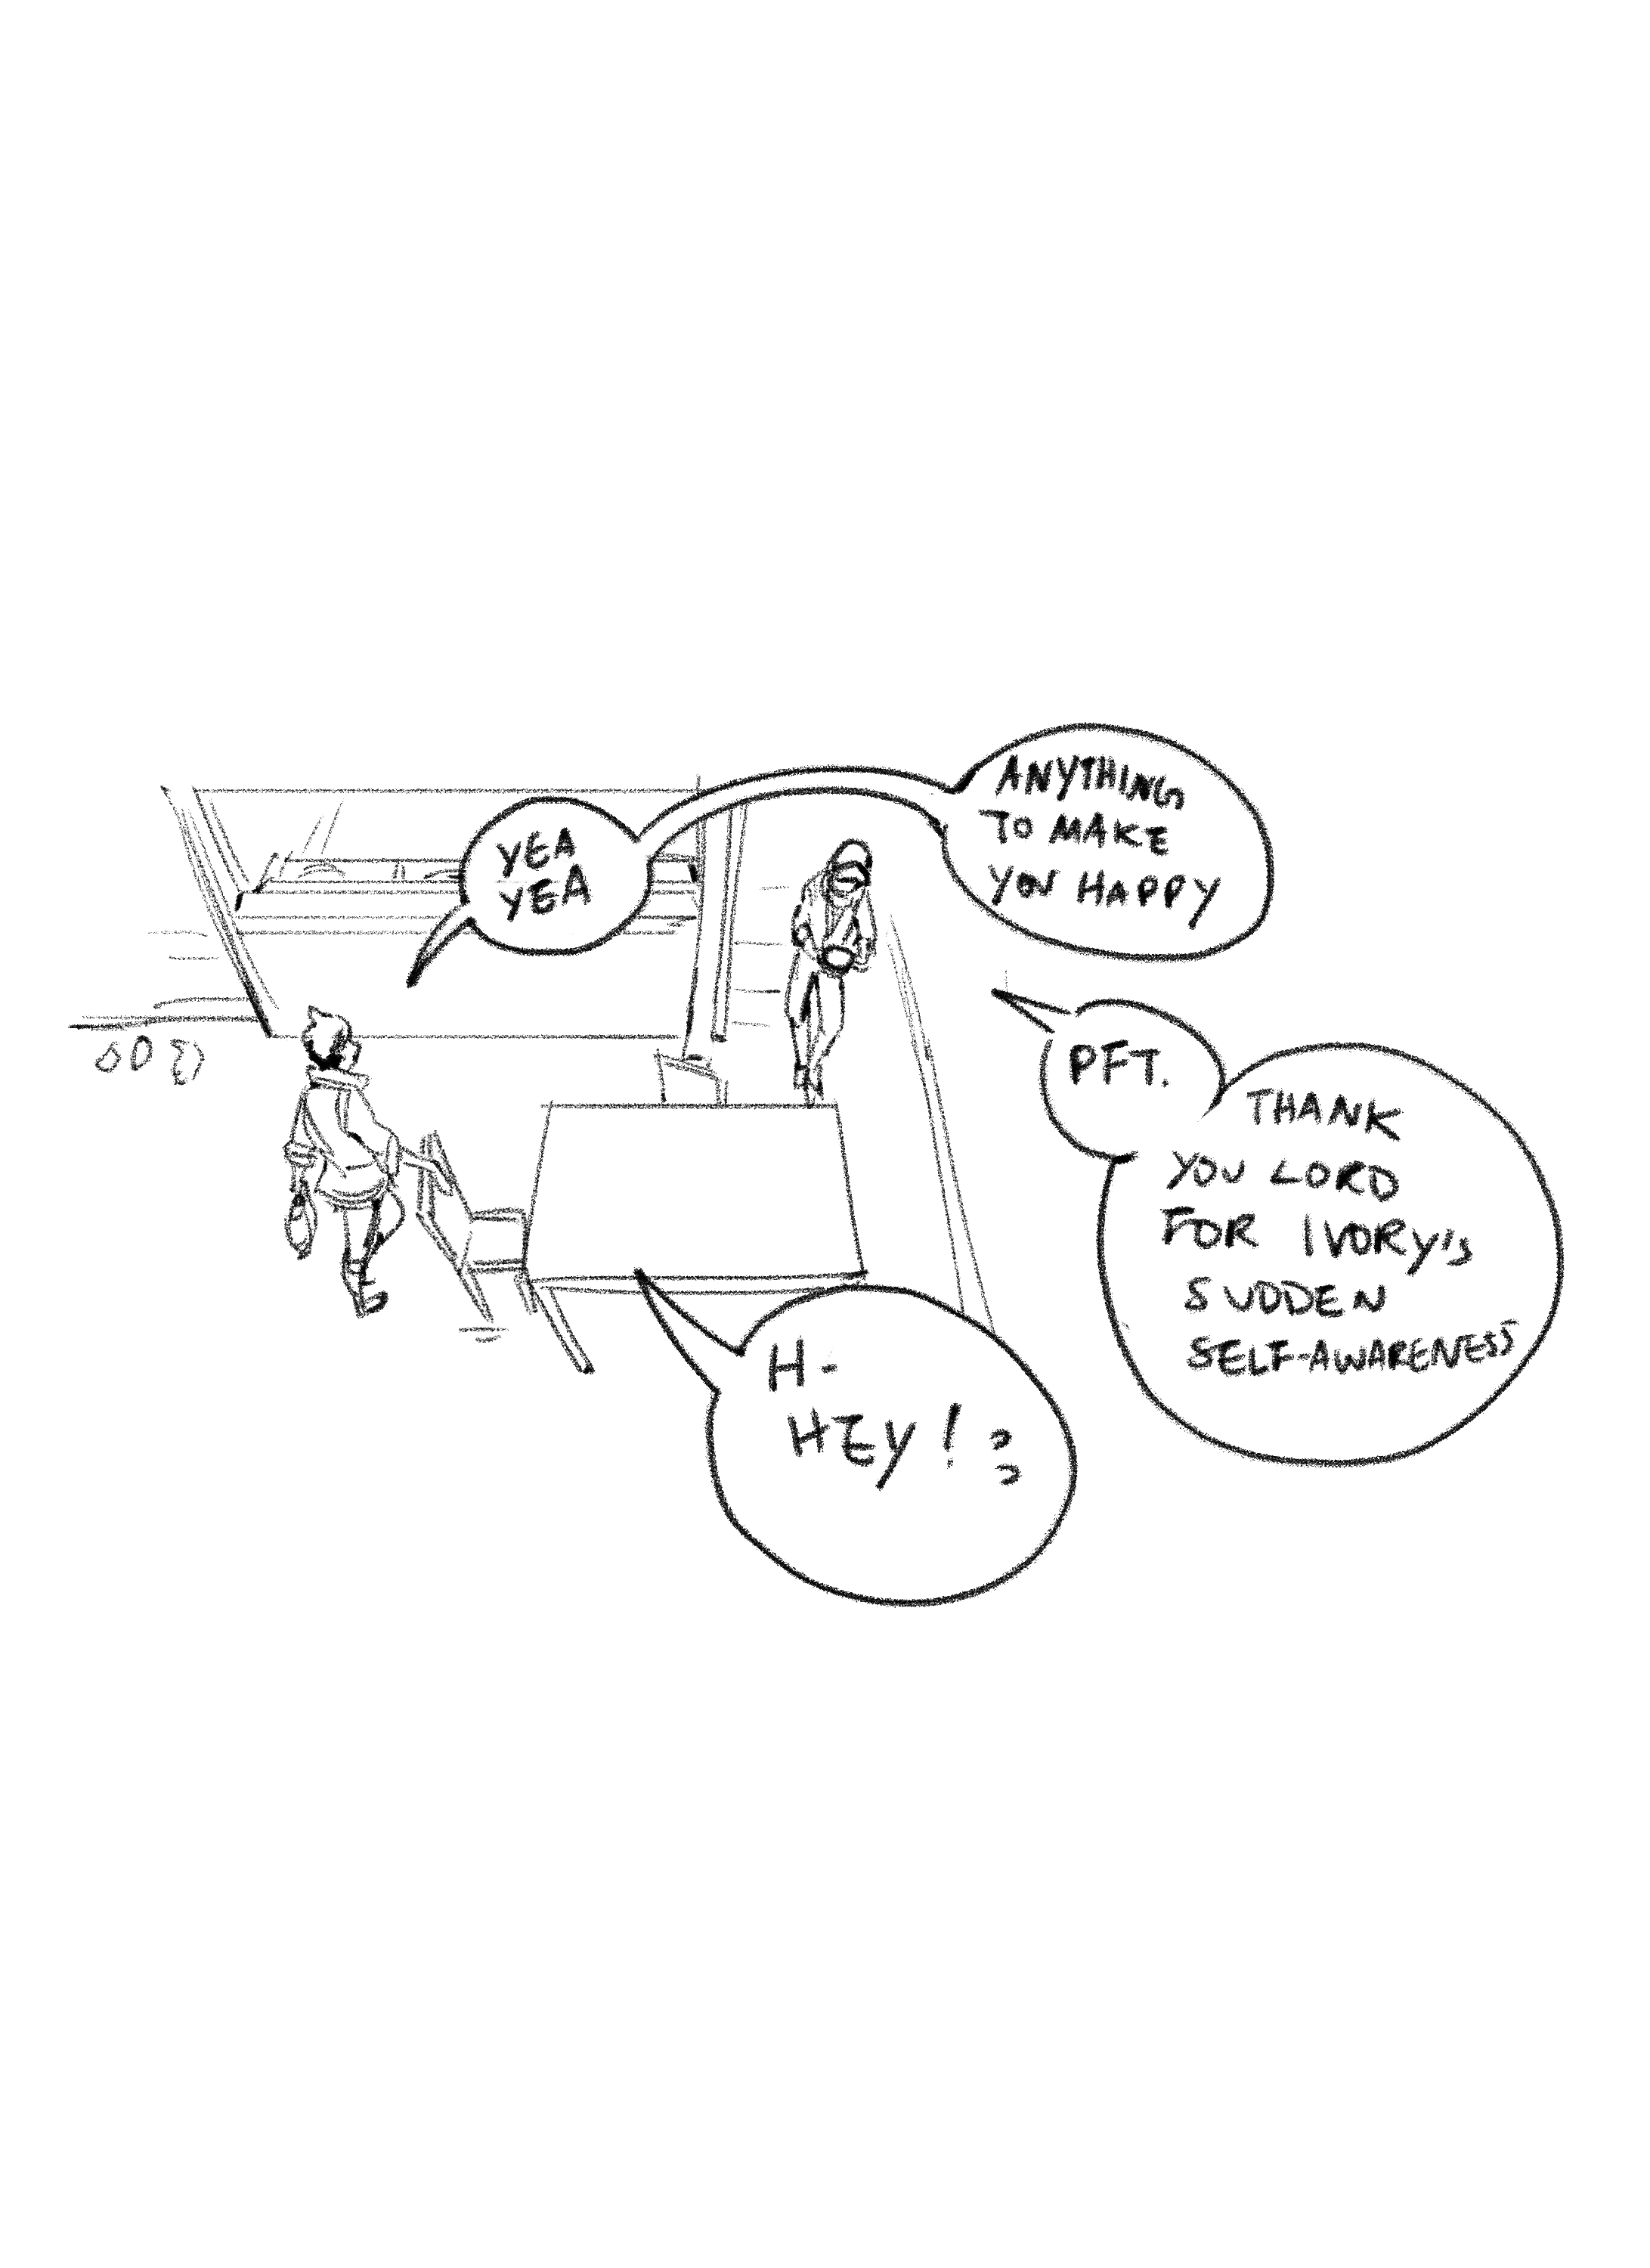 YEA
YEA
ANYTHING
TO MAKE
YOU HAPPY
PFT.
THANK
YOU LORD
FOR IVORY'S
SUDDEN
SELF-AWARENESS
H-
HEY!